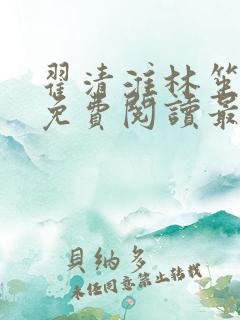 翟清淮林笙
免費閱讀最
貝納多
未經同意禁止轉載